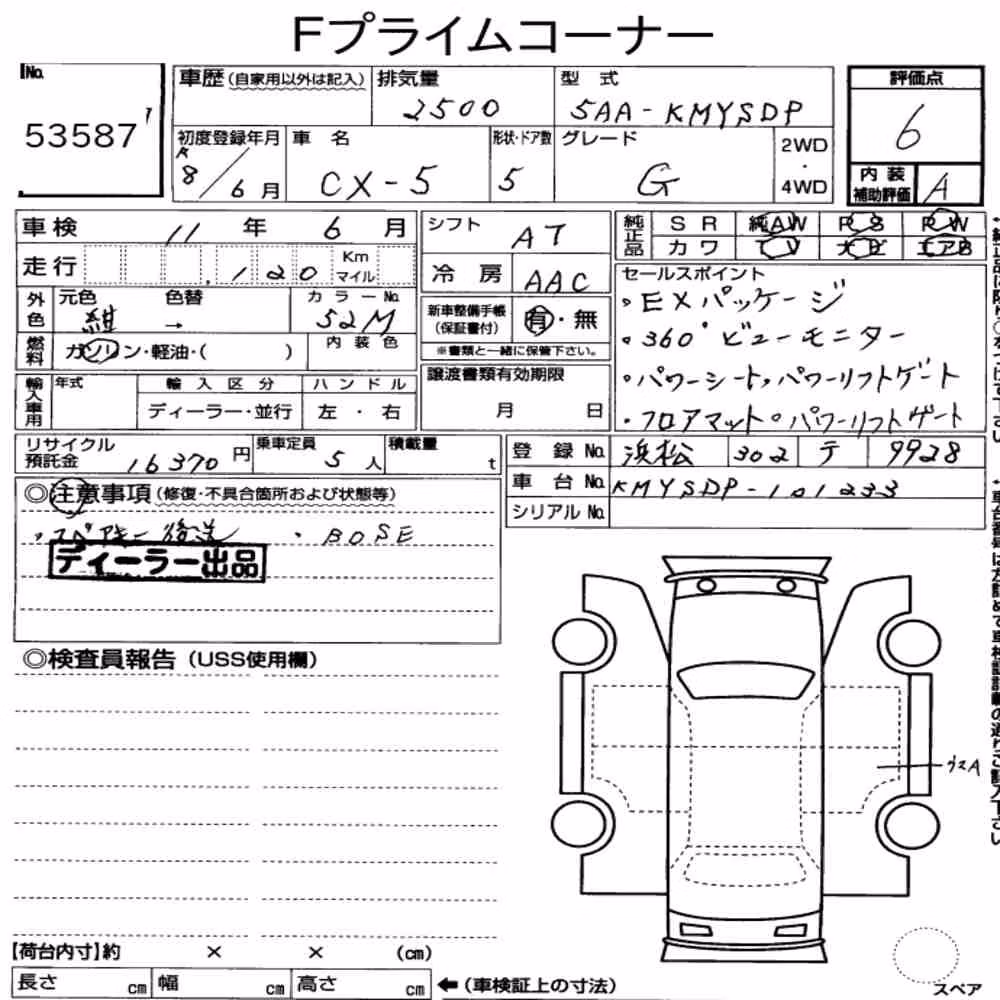 Fプライムコーナー
No.
53587
車歴 (自家用以外は記入) 排気量 型式
2500 5AA-KMYSDP
初度登録年月 車名 形状・ドア数 グレード 2WD・4WD
R 8/6月 CX-5 5 G
評価点
6
内装補助評価 A
車検 11年 6月
走行 120 Km マイル
外色 元色 紺 色替 → カラーNo. 52M
燃料 ガソリン・軽油・( ) 内装色
輸入車用 年式 輸入区分 ハンドル
ディーラー・並行 左・右
リサイクル預託金 16370円 乗車定員 5人 積載量 t
シフト AT
冷房 AAC
新車整備手帳(保証書付) 有・無
※書類と一緒に保管下さい。
譲渡書類有効期限
月 日
純正品 SR 純AW PS PW
カワ TV ナビ エアB
セールスポイント
・EXパッケージ
・360°ビューモニター
・パワーシート,パワーリフトゲート
・フロアマット・パワーリフトゲート
登録No. 浜松 302 テ 9928
車台No. KMYSDP-101233
シリアルNo.
◎注意事項 (修復・不具合箇所および状態等)
・スペアキー後送 ・BOSE
ディーラー出品
◎検査員報告 (USS使用欄)
ウスA
【荷台内寸】約 × × (cm)
長さ cm 幅 cm 高さ cm ←(車検証上の寸法)
スペア